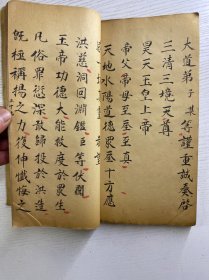 大道弟子某等謹重誠叅啓
三清三境天尊
昊天玉皇上帝
帝父帝母至聖至真
天地水陽道德眾聖十方應
洪慈洞回淵鑑臣等伏聞
玉帝功德大能救度於眾生
凡俗罪愆深故歸投於洪造
既極稱揚之力復伸懺悔之